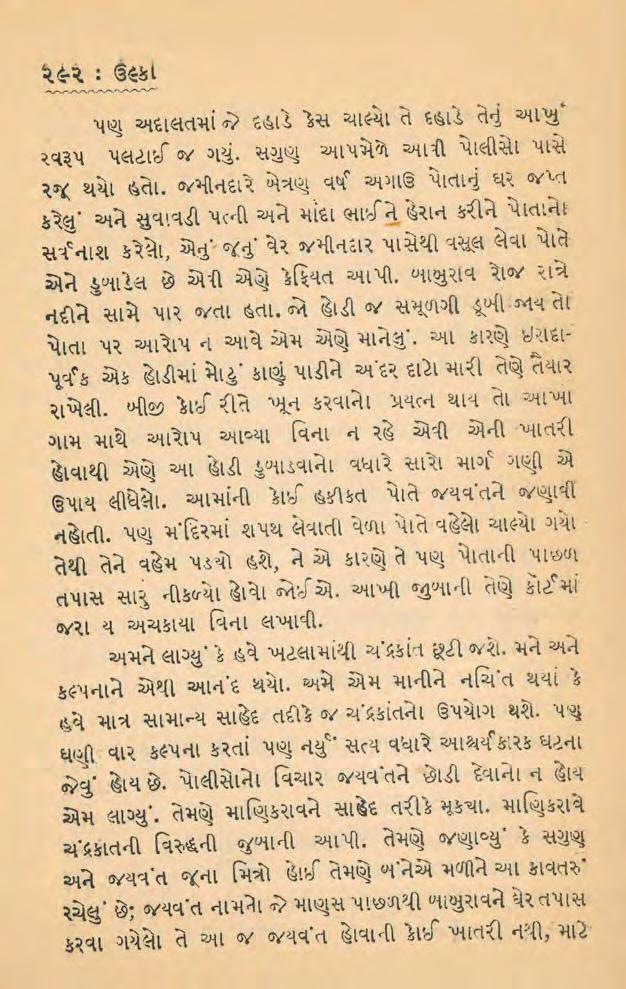 ૨૯૨ : ઉલ્કા
પણ અદાલતમાં જે દહાડે કેસ ચાલ્યો તે દહાડે તેનું આખું
સ્વરૂપ પલટાઈ જ ગયું. સગુણ આપમેળે આવી પોલીસો પાસે
રજૂ થયો હતો. જમીનદારે બેત્રણ વર્ષ અગાઉ પોતાનું ઘર જપ્ત
કરેલું અને સુવાવડી પત્ની અને માંદા ભાઈને હેરાન કરીને પોતાનો
સર્વનાશ કરેલો, એનું જૂનું વેર જમીનદાર પાસેથી વસૂલ લેવા પોતે
એને ડુબાડેલ છે એવી એણે કેફિયત આપી. બાબુરાવ રોજ રાત્રે
નદીને સામે પાર જતા હતા. જો હોડી જ સમૂળગી ડૂબી જાય તો
પોતા પર આરોપ ન આવે એમ એણે માનેલું. આ કારણે ઇરાદા-
પૂર્વક એક હોડીમાં મોટું કાણું પાડીને અંદર દાટો મારી તેણે તૈયાર
રાખેલી. બીજી કોઈ રીતે ખૂન કરવાનો પ્રયત્ન થાય તો આખા
ગામ માથે આરોપ આવ્યા વિના ન રહે એવી એની ખાતરી
હોવાથી એણે આ હોડી ડુબાડવાનો વધારે સારો માર્ગ ગણી એ
ઉપાય લીધેલો. આમાંની કોઈ હકીકત પોતે જયવંતને જણાવી
નહોતી. પણ મંદિરમાં શપથ લેવાતી વેળા પોતે વહેલો ચાલ્યો ગયો
તેથી તેને વહેમ પડયો હશે, ને એ કારણે તે પણ પોતાની પાછળ
તપાસ સારું નીકળ્યો હોવો જોઈએ. આખી જુબાની તેણે કૉર્ટમાં
જરા ય અચકાયા વિના લખાવી.
અમને લાગ્યું કે હવે ખટલામાંથી ચંદ્રકાંત છૂટી જશે. મને અને
કલ્પનાને એથી આનંદ થયો. અમે એમ માનીને નચિંત થયાં કે
હવે માત્ર સામાન્ય સાહેદ તદીકે જ ચંદ્રકાંતનો ઉપયોગ થશે. પણ
ઘણી વાર કલ્પના કરતાં પણ નર્યું સત્ય વધારે આશ્ચર્યકારક ઘટના
જેવું હોય છે. પોલીસોનો વિચાર જયવંતને છોડી દેવાનો ન હોય
એમ લાગ્યું. તેમણે માણિકરાવને સાહેદ તરીકે મૂકયા. માણિકરાવે
ચંદ્રકાતની વિરુદ્ધની જુબાની આપી. તેમણે જણાવ્યું કે સગુણ
અને જયવંત જૂના મિત્રો હોઈ તેમણે બંનેએ મળીને આ કાવતરું
રચેલું છે; જયવંત નામનો જે માણસ પાછળથી બાબુરાવને ઘેર તપાસ
કરવા ગયેલો તે આ જ જયવંત હોવાની કોઈ ખાતરી નથી, માટે